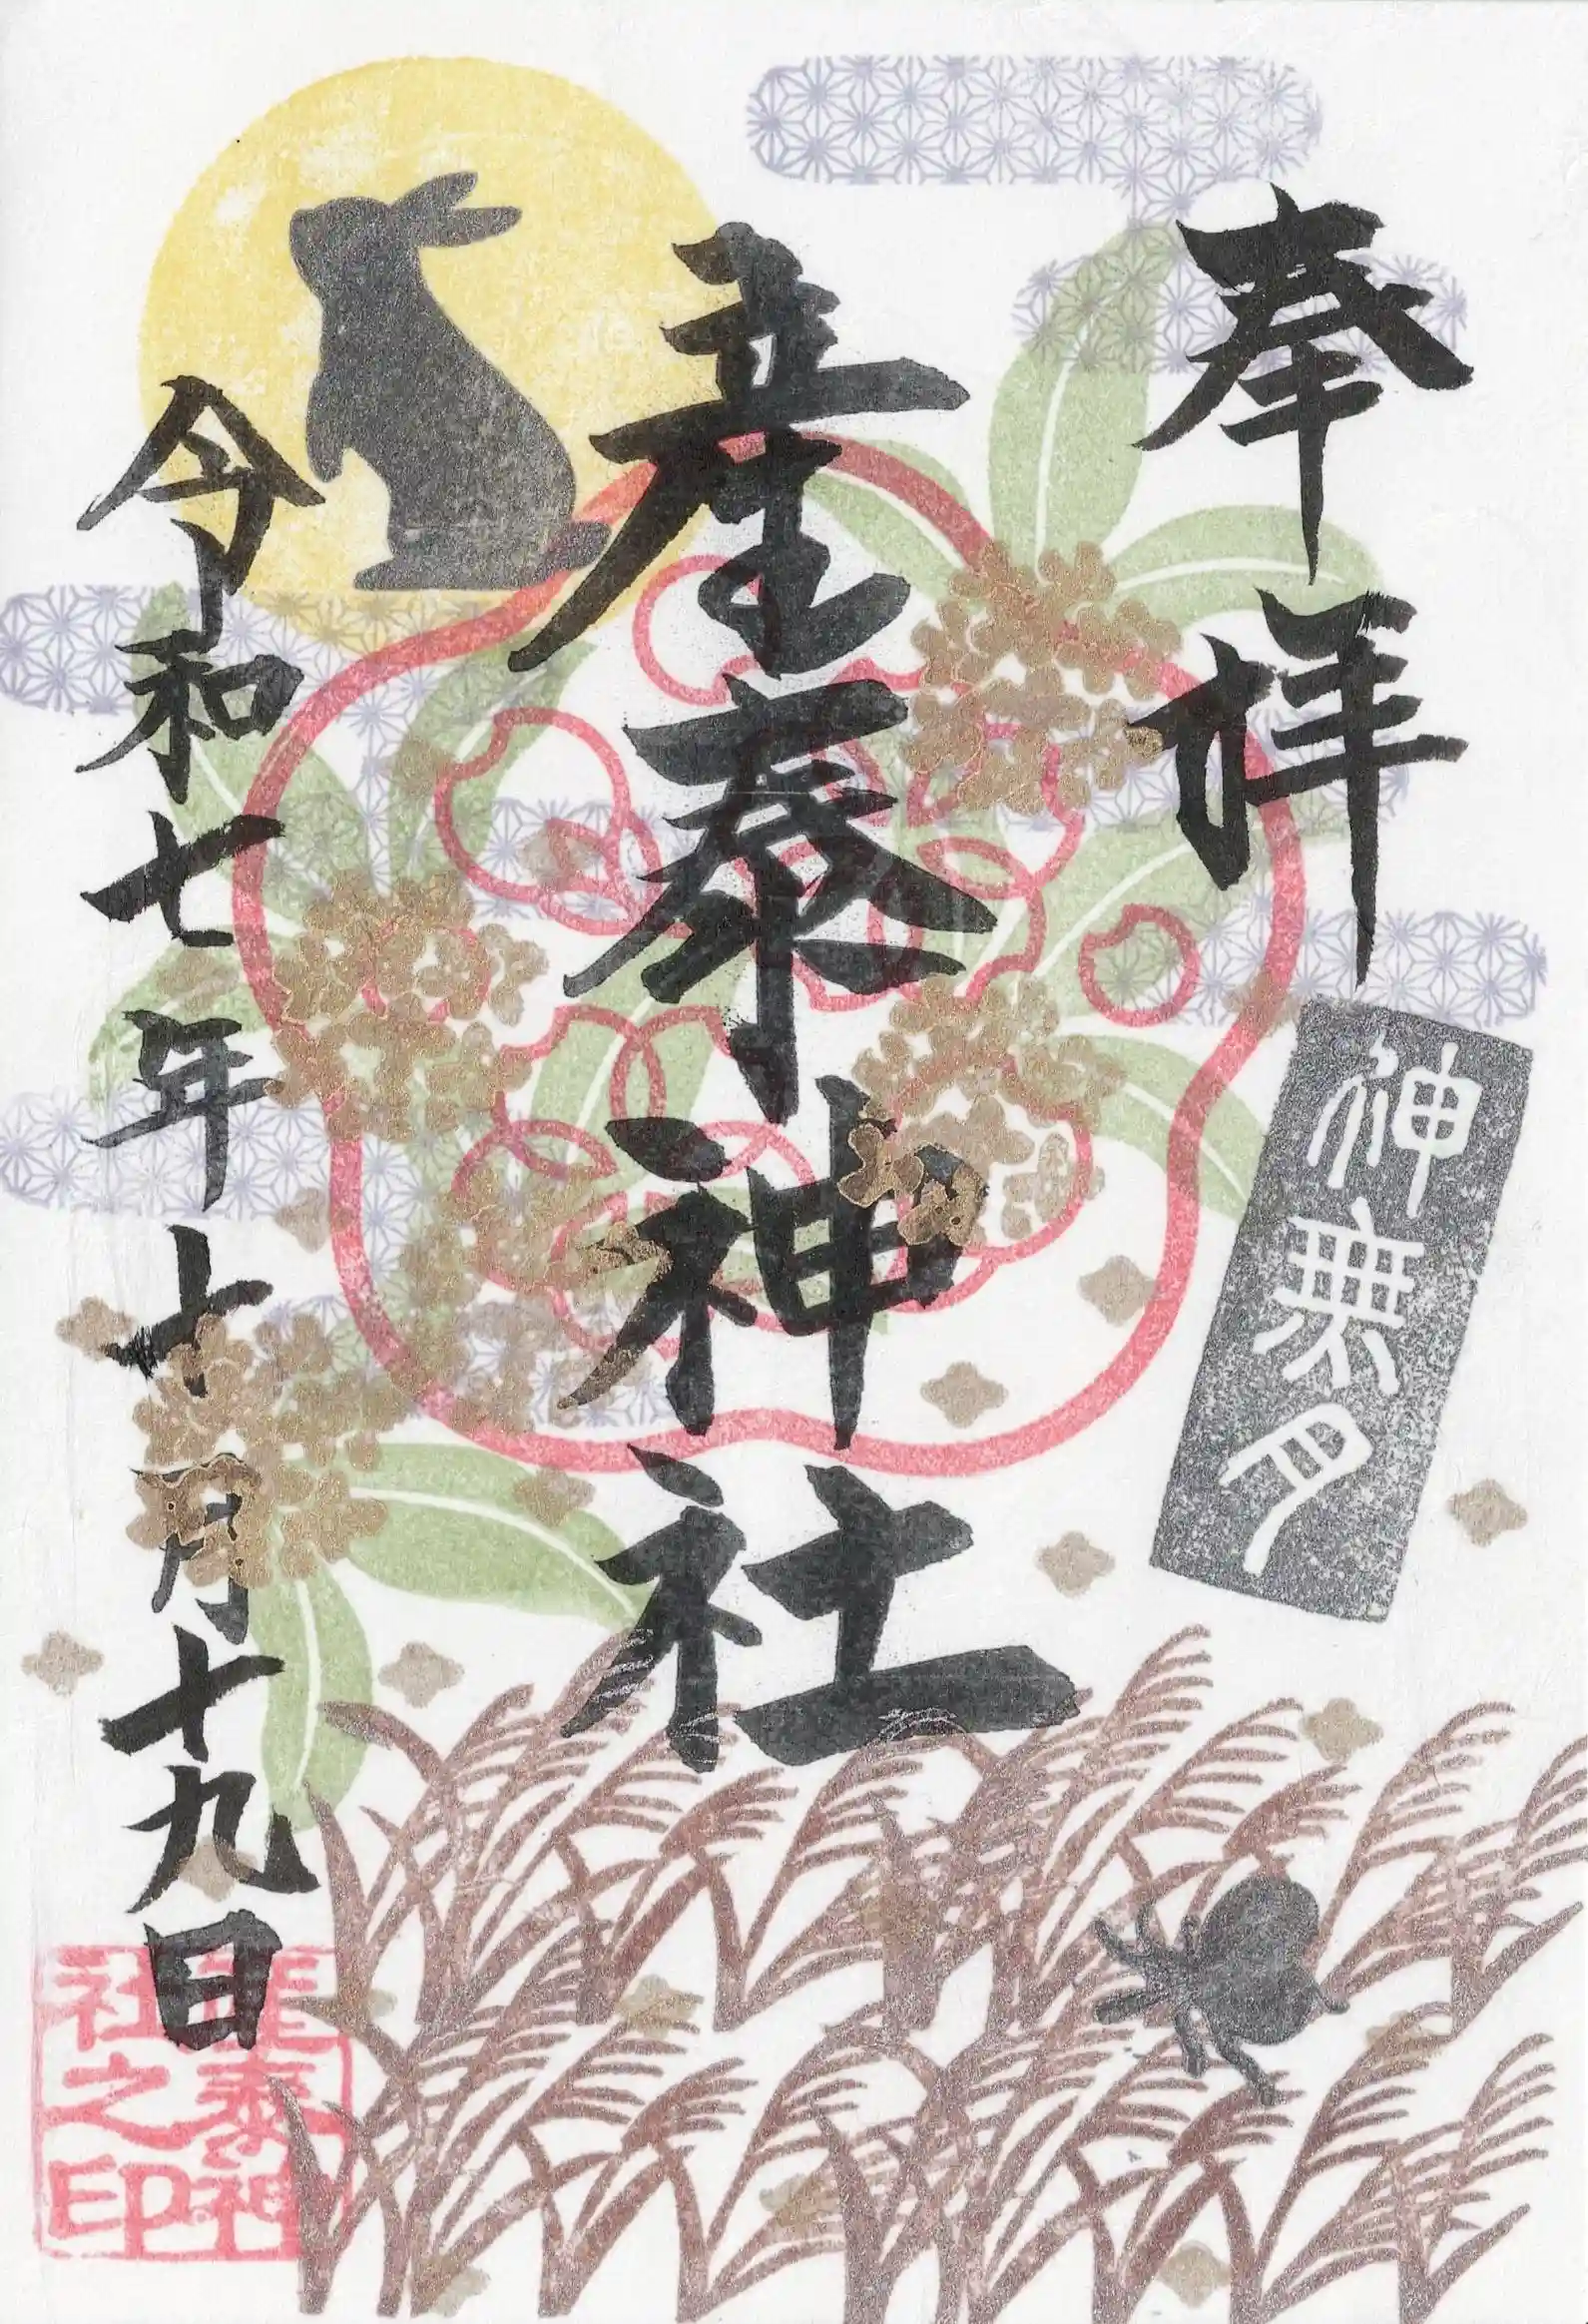 奉拝
神無月
産泰神社
令和七年十月十九日
産泰神社之印